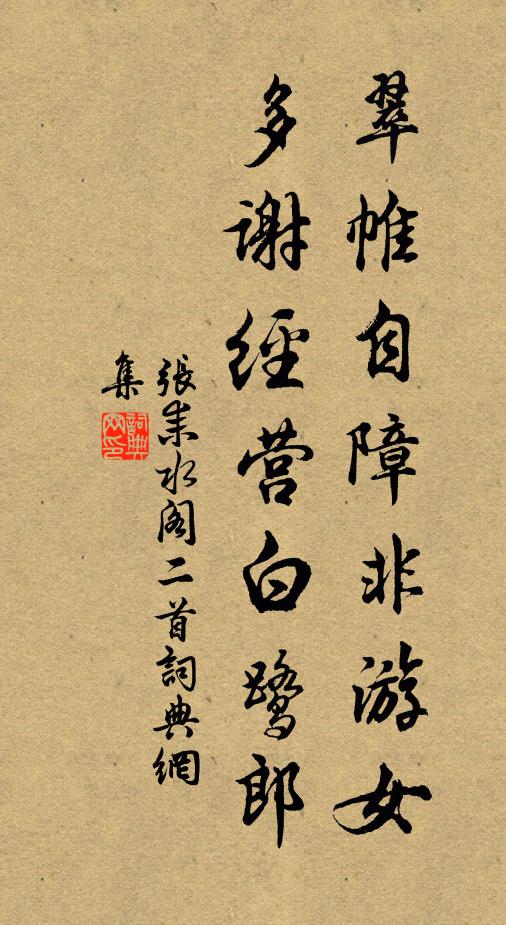 翠帷自障非游女
多谢經营白鹭郎
張耒水阁二首詞典網
集
詞典
網印